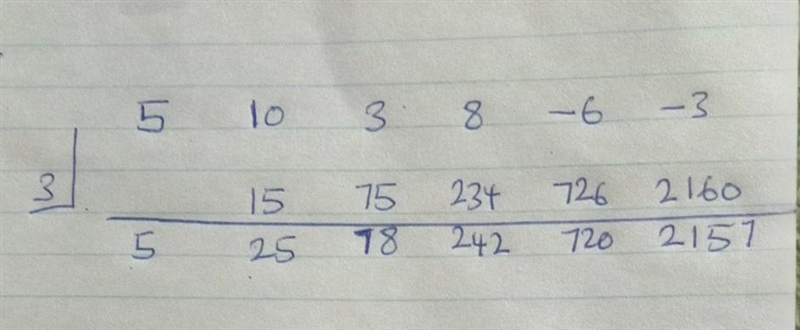 5 10 3 8 -6 -3
3
15 75 234 726 2160
5 25 78 242 720 2157